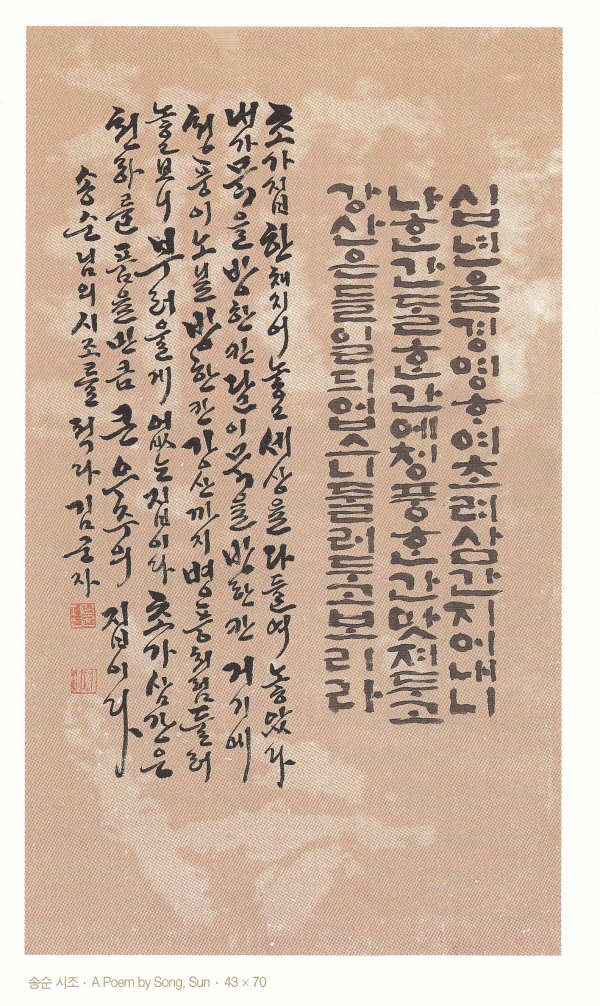 십년을경영ᄒᆞ여초려삼간지어내니
나ᄒᆞᆫ간ᄃᆞᆯᄒᆞᆫ간에청풍ᄒᆞᆫ간맛져두고
강산은들일듸업스니둘러두고보리라
초가집 한채지어 놓고 세상을 다 들여 놓았다
내가 묵을 방 한칸 달이 묵을 방 한칸 거기에
청풍이 노닐 방 한칸 강산까지 병풍처럼 둘러
부러울게 없는 집이다 초가삼간은
천하를 품을 만큼 큰 우주의 집이다
송순님의 시조를 적다
송순 시조 · A Poem by Song, Sun · 43 × 70